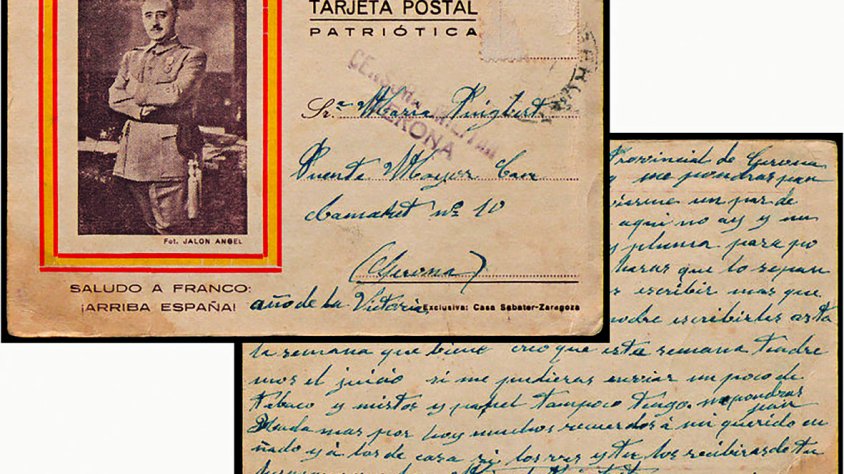 TARJETA POSTAL
PATRIÓTICA
CENSURA MILITAR
GERONA
Sr.ª Maria Puigbert
Puente Mayor Can
Camaket nº 10
(Gerona)
año de la Victoria
Fot. JALON ANGEL
SALUDO A FRANCO:
¡ARRIBA ESPAÑA!
Exclusiva: Casa Sabater-Zaragoza
Provincial de Gerona
y me pondras pan
un par de
aqui no ay y un
y pluma para po
que lo sepan
escribir mas que
escribirles asta
la semana que biene creo que esta semana tendre
mos el juicio si me pudieras enviar un poco de
tabaco y mistos y papel tampoco tengo me pondras
pan
Nada mas por hoy muchos recuerdos á mi querido cu
ñado y á los de casa
los recibiras de tu